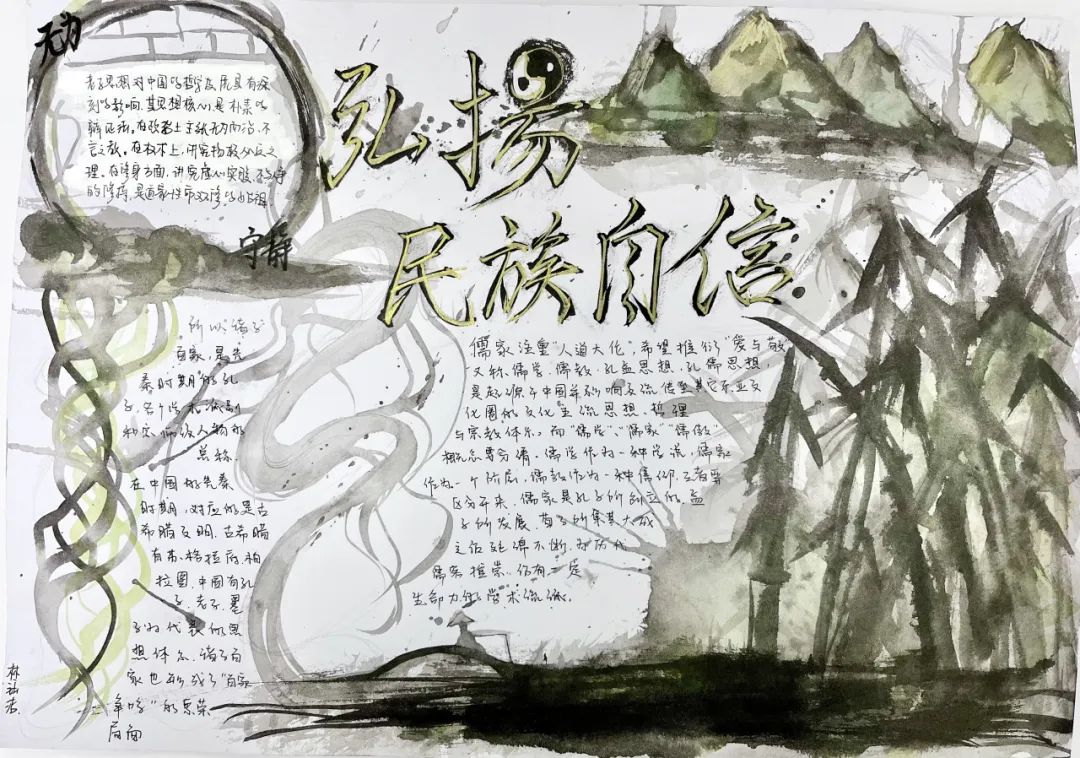 弘揚
民族自信
无为
老子思想对中国的哲学发展具有深
刻的影响,其思想核心是朴素的
辩证法。在政治上主张无为而治、不
言之教。在权术上,讲究物极必反之
理。在修身方面,讲究虚心实腹、不与人争
的修持,是道家性命双修的始祖
守静
所以"诸子
百家,是先
秦时期"的孔
子,各个学术派别
和宗派级人物的
总称
在中国的先秦
时期,对应的是古
希腊文明,古希腊
有苏格拉底、柏
拉图,中国有孔
子、老子、墨
子为代表的思
想体系,诸子百
家也形成了"百家
争鸣"的繁荣
局面
儒家注重"人道大伦",希望推衍"爱与敬"
又称儒学、儒教、孔孟思想、孔儒思想,
是起源于中国并影响及流传至其它东亚文
化圈的文化主流思想、哲理
与宗教体系。而"儒学"、"儒家""儒教"
概念要分清,儒学作为一种学派,儒家
作为一个阶层,儒教作为一种信仰,三者要
区分开来。儒家是孔子所创立的,孟
子所发展,荀子所集其大成
之后延绵不断,为历代
儒客推崇,仍有一定
生命力的学术流派。